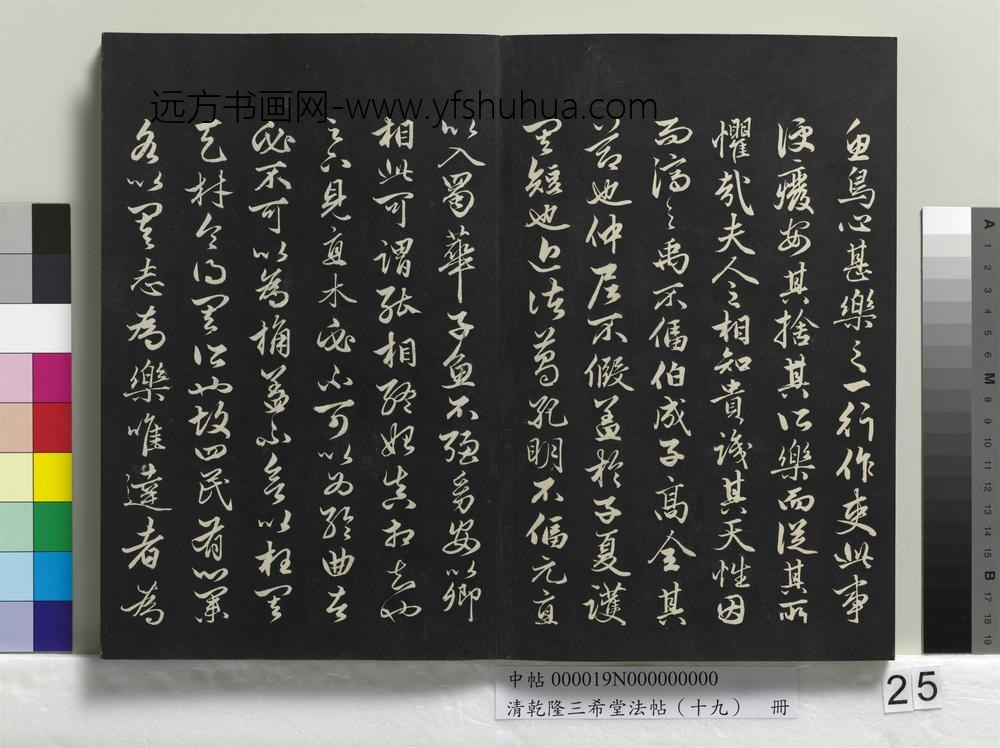 魚鳥心甚樂之一行作吏此事
便廢安能捨其所樂而從其所
懼哉夫人之相知貴識其天性因
而濟之禹不偪伯成子高全其
節也仲尼不假蓋於子夏護
其短也近諸葛孔明不偪元直
以入蜀華子魚不強幼安以卿
相此可謂能相終始真相知也
足下見直木必不可以為輪曲者
必不可以為桷蓋不欲以枉其
天材令得其所也故四民有業
各以其志為樂唯達者為
远方书画网-www.yfshuhua.com
中帖 000019N000000000
清乾隆三希堂法帖（十九） 冊
25
A 1 2 3 4 5 6 M 8 9 10 11 12 13 14 15 B 17 18 19